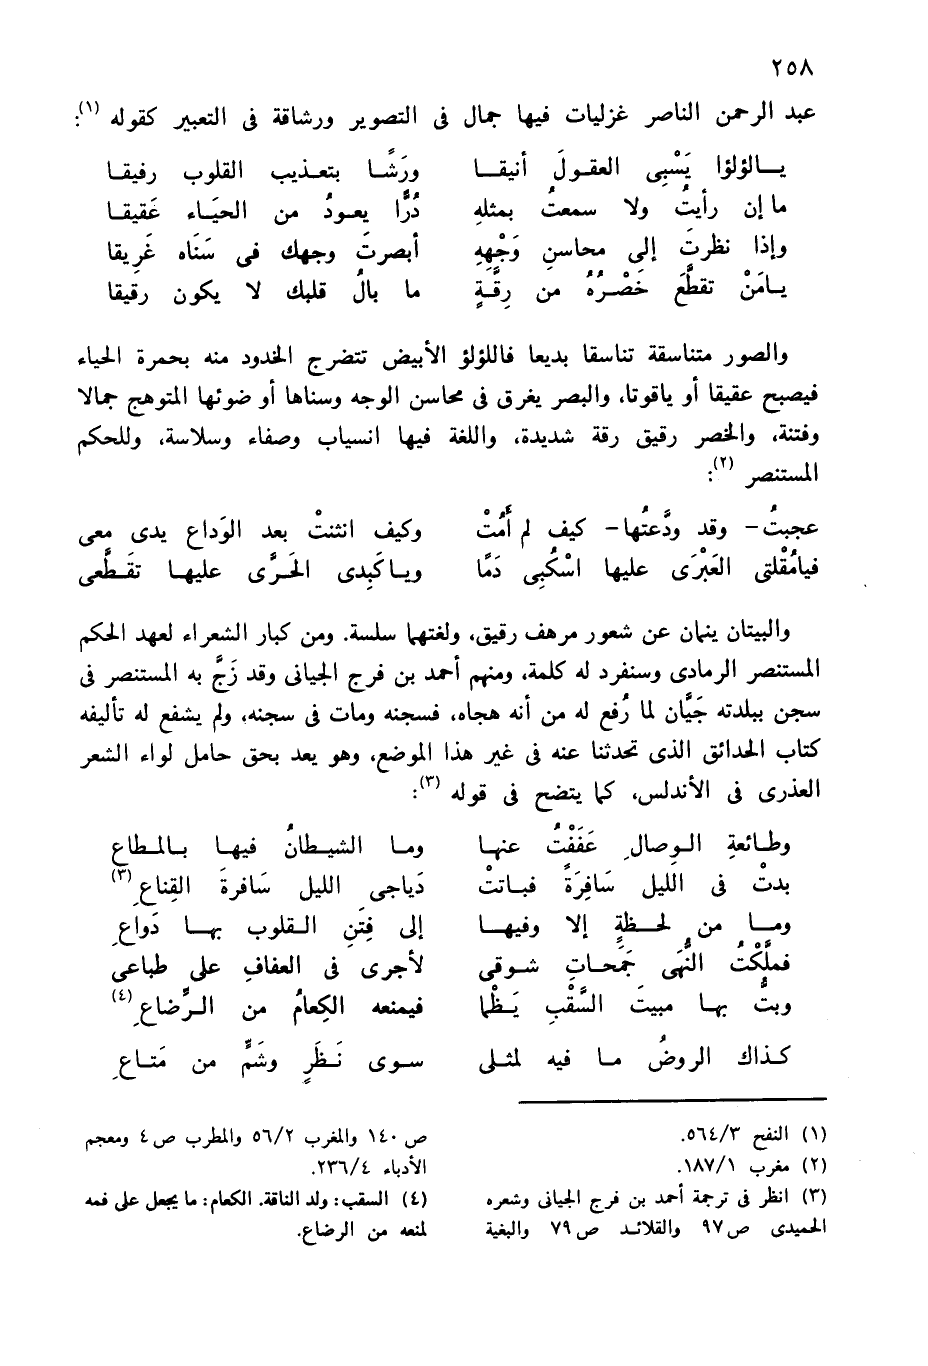 ٢٥٨
عبد الرحمن الناصر غزليات فيها جمال فى التصوير ورشاقة فى التعبير كقوله (١):
يـــالؤلؤا يَسْبِى العقـولَ أنيقـــا ورَشًــا بتعـذيب القلوب رفيقـا
ما إن رأيتُ ولا سمعتُ بمثلهِ دُرًّا يعـودُ من الحيَـاء عَقيقـا
وإذا نظرتَ إلى محاسنِ وَجْهِهِ أبصرتَ وجهك فى سَنَاه غَرِيقا
يـامَنْ تقطَّعَ خَصْـرُهُ من رِقَّـةٍ ما بالُ قلبك لا يكون رقيقا
والصور متناسقة تناسقا بديعا فاللؤلؤ الأبيض تتضرج الخدود منه بحمرة الحياء
فيصبح عقيقا أو ياقوتا، والبصر يغرق فى محاسن الوجه وسناها أو ضوئها المتوهج جمالا
وفتنة، والخصر رقيق رقة شديدة، واللغة فيها انسياب وصفاء وسلاسة، وللحكم
المستنصر (٢):
عجبتُ – وقد ودَّعتُها – كيف لم أمُتْ وكيف انثنتْ بعد الوَداع يدى معى
فيامُقْلتى العَبْرَى عليها اسْكُبِى دَمًا ويـاكَبِدى الحَـرَّى عليهـا تقَـطَّعى
والبيتان ينمان عن شعور مرهف رقيق، ولغتهما سلسة. ومن كبار الشعراء لعهد الحكم
المستنصر الرمادى وسنفرد له كلمة، ومنهم أحمد بن فرج الجيانى وقد زَجَّ به المستنصر فى
سجن ببلدته جَيَّان لما رُفع له من أنه هجاه، فسجنه ومات فى سجنه، ولم يشفع له تأليفه
كتاب الحدائق الذى تحدثنا عنه فى غير هذا الموضع، وهو يعد بحق حامل لواء الشعر
العذرى فى الأندلس، كما يتضح فى قوله (٣):
وطـائعةِ الـوِصالِ عَفَفْتُ عنهـا ومـا الشيـطانُ فيهـا بـالمـطاع
بدتْ فى الليل سَافِرَةً فبـاتتْ دَياجى الليل سَافرةَ القِناعِ (٣)
ومــا من لحـظةٍ إلا وفيهــا إلى فِتَنِ القـلوب بهـا دَواعِ
فملَّكْتُ النُّهَى جَمَحـاتِ شـوقى لأجرى فى العفافِ على طباعى
وبتُّ بهـا مبيتَ السَّقْبِ يَـظْما فيمنعه الكِعامُ من الـرَّضاعِ (٤)
كـذاك الروضُ مـا فيه لمثلى سـوى نَـظَرٍ وشَمٍّ من مَتـاعِ
(١) النفح ٥٦٤/٣.
(٢) مغرب ١٨٧/١.
(٣) انظر فى ترجمة أحمد بن فرج الجيانى وشعره
الحميدى ص٩٧ والقلائـد ص٧٩ والبغية
ص ١٤٠ والمغرب ٥٦/٢ والمطرب ص٤ ومعجم
الأدباء ٢٣٦/٤.
(٤) السقب: ولد الناقة. الكعام: ما يجعل على فمه
لمنعه من الرضاع.